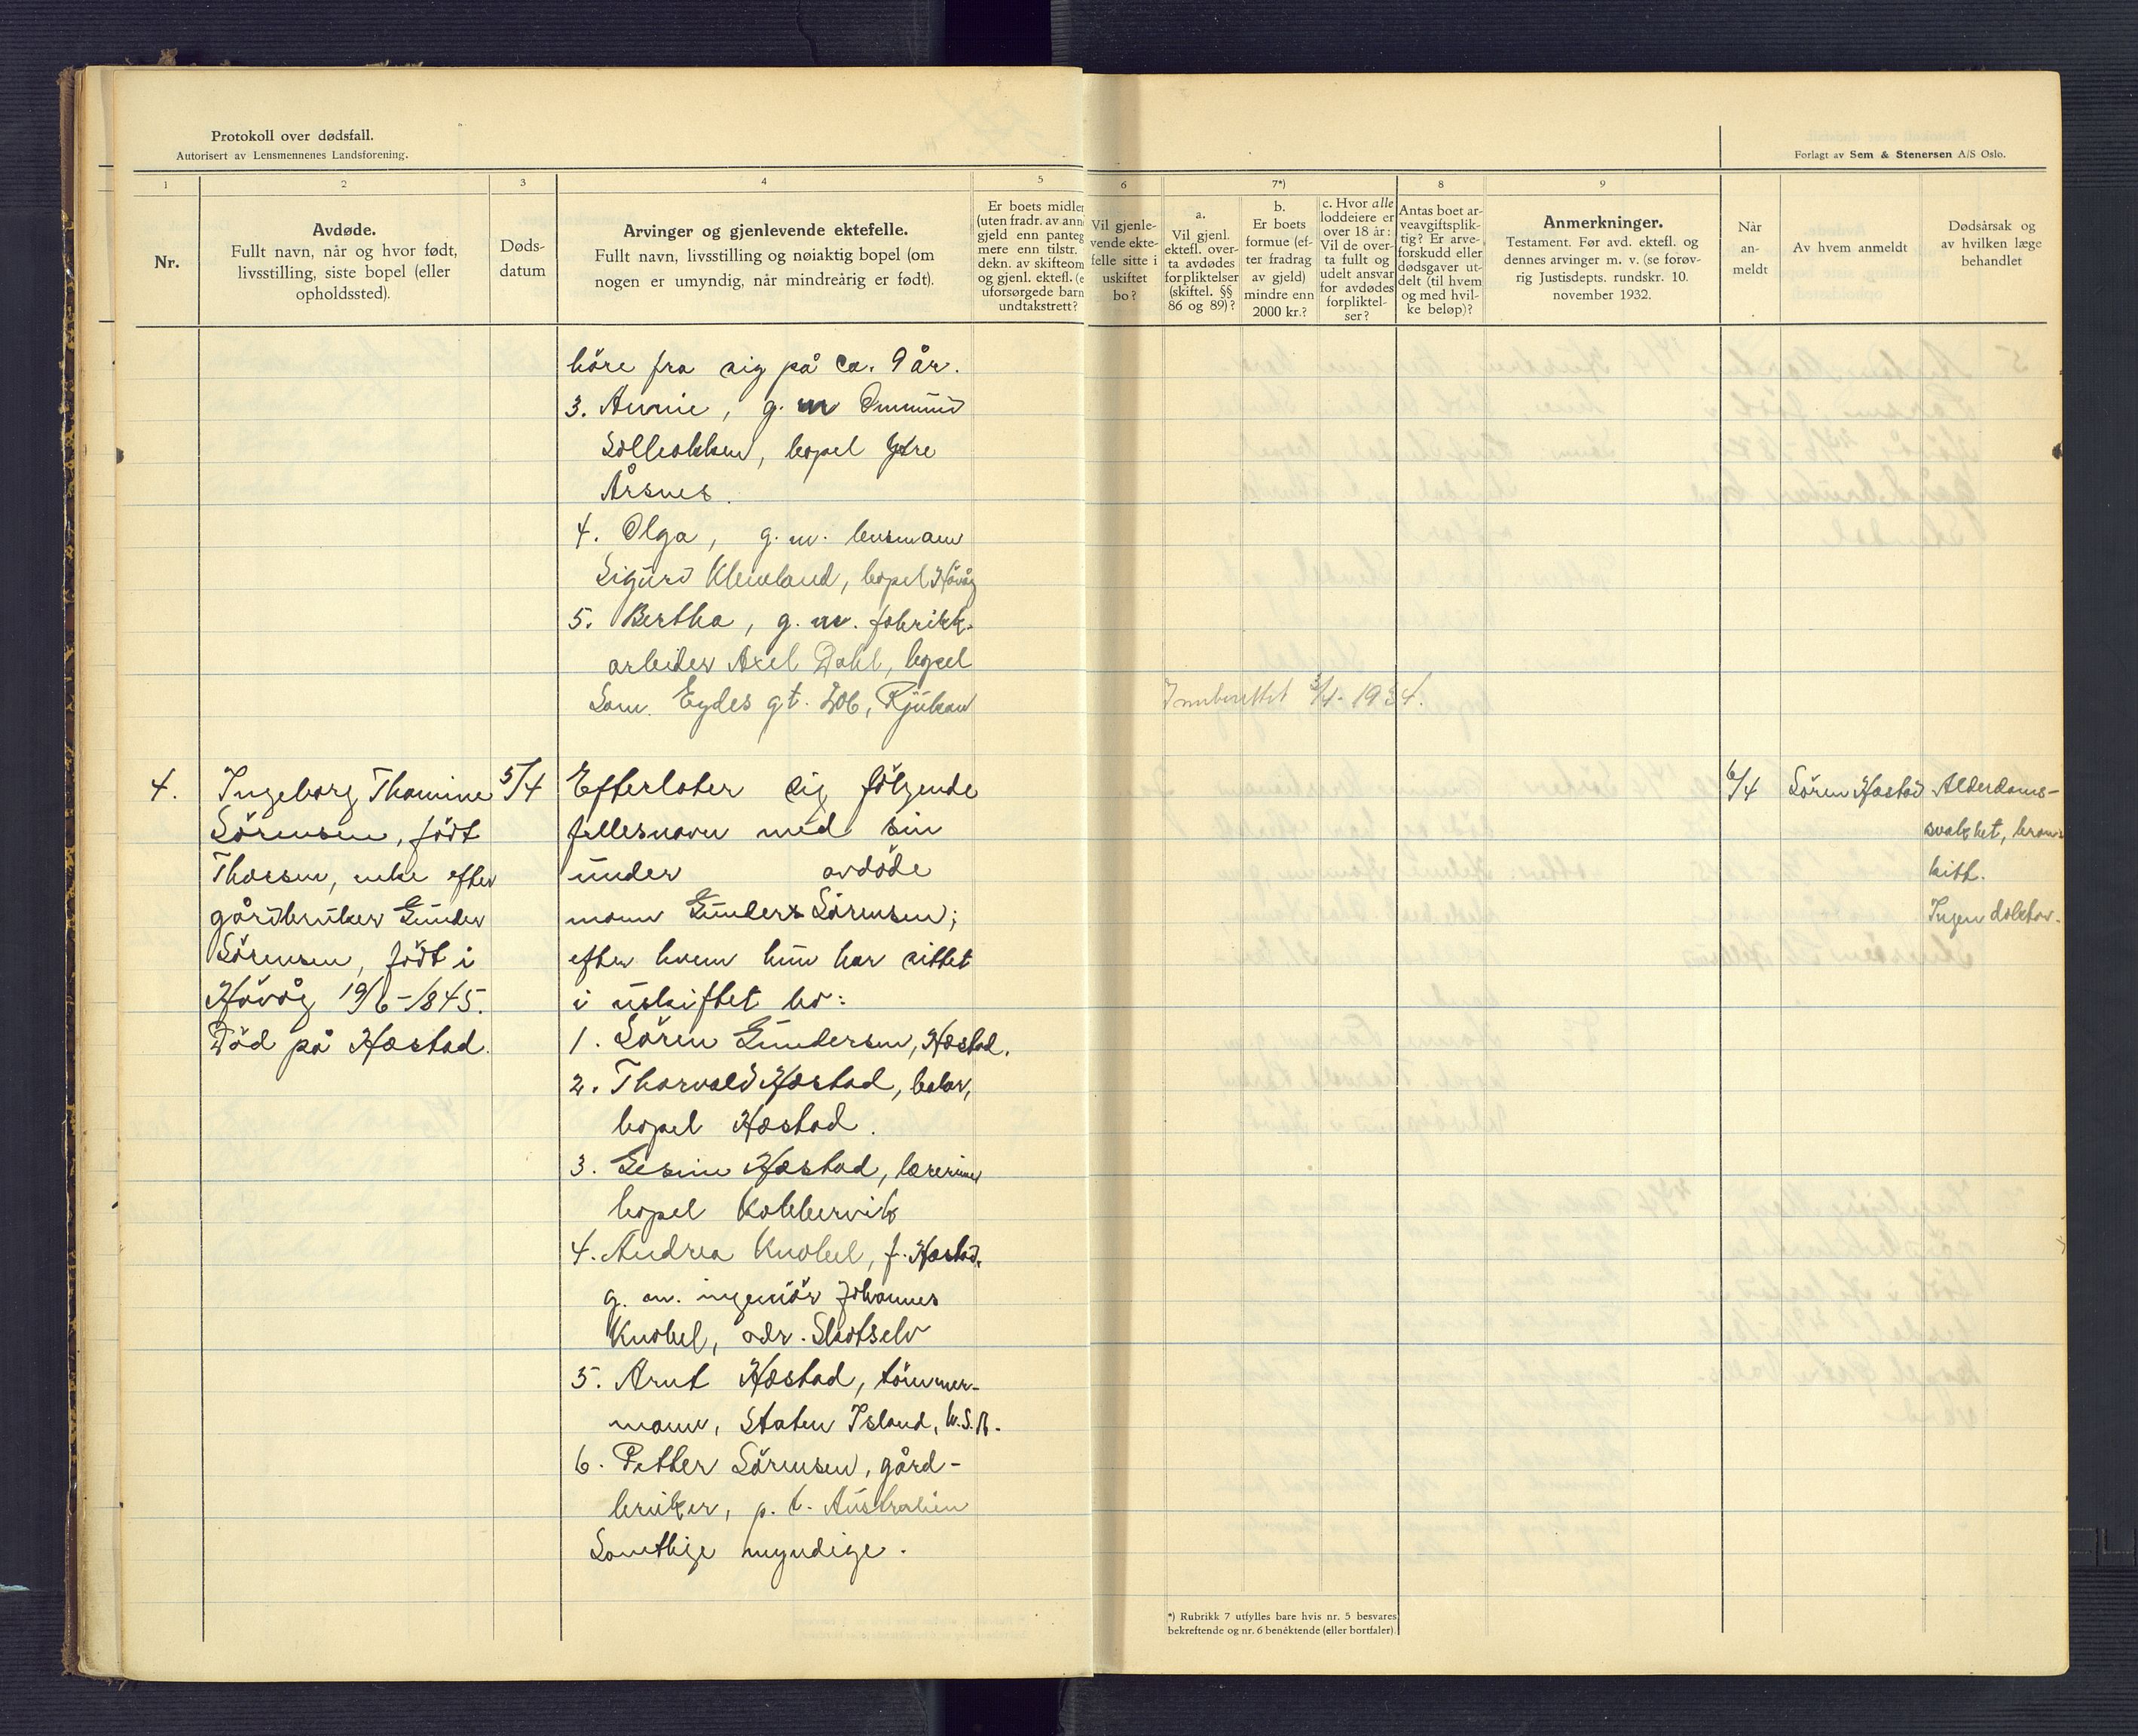 Protokoll over dødsfall.
Autorisert av Lensmennenes Landsforening.
Forlagt av Sem & Stenersen A/S Oslo.
1
2
3
4
5
6
7*)
8
9
Nr.
Avdøde.
Fullt navn, når og hvor født,
livsstilling, siste bopel (eller
opholdssted).
Døds-
datum
Arvinger og gjenlevende ektefelle.
Fullt navn, livsstilling og nøiaktig bopel (om
nogen er umyndig, når mindreårig er født).
Er boets midler
(uten fradr. av ann
gjeld enn panteg
mere enn tilstr.
dekn. av skifteom
og gjenl. ektefl. (e
uforsørgede barn
undtakstrett?
Vil gjenle-
vende ekte-
felle sitte i
uskiftet
bo?
a.
Vil gjenl.
ektefl. over-
ta avdødes
forpliktelser
(skiftel. §§
86 og 89)?
b.
Er boets
formue (ef-
ter fradrag
av gjeld)
mindre enn
2000 kr.?
c. Hvor alle
loddeiere er
over 18 år:
Vil de over-
ta fullt og
udelt ansvar
for avdødes
forpliktel-
ser?
Antas boet ar-
veavgiftsplik-
tig? Er arve-
forskudd eller
dødsgaver ut-
delt (til hvem
og med hvil-
ke beløp)?
Anmerkninger.
Testament. Før avd. ektefl. og
dennes arvinger m. v. (se forøv-
rig Justisdepts. rundskr. 10.
november 1932.
Når
an-
meldt
Av hvem anmeldt
Dødsårsak og
av hvilken læge
behandlet
höre fra sig på ca. 9 år.
3. Annie, g. m Ommund
bopel Ytre
Årsnes.
4. Olga, g. m. lensmann
Sigurd Kleveland, bopel Hövåg
5. Bertha, g. m. fabrikk-
arbeider Axel Dahl, bopel
Sam. Eydes gt. 206, Rjukan
Innberettet 3/4-1934.
4.
Ingeborg Thomine
Sörensen, født
Thorsen, enke efter
gårdbruker Gunder
Sörensen, født i
Hövåg 19/6-1845.
Död på Hæstad.
5/4
Efterlater sig fölgende
fellesnavn med sin
under avdöde
mann Gunder Sörensen;
efter hvem hun har sittet
i uskiftet bo:
1. Sören Gundersen, Hæstad.
2. Thorvald Hæstad, baker,
bopel Hæstad.
3. Gesine Hæstad, lærerinne
bopel Kobbervik
4. Andrea Knobel, f. Hæstad,
g. m. ingeniör Johannes
Knobel, adr. Skotselv
5. Arnt Hæstad, tömmer-
mann, Staten Island, U.S.A.
6. Petter Sörensen, gård-
bruker, p. t. Australien
Samtlige myndige.
6/4
Sören Hæstad
Alderdoms-
svakhet, bron-
kitt.
Ingen doktor.
*) Rubrikk 7 utfylles bare hvis nr. 5 besvares
bekreftende og nr. 6 benektende (eller bortfaler).